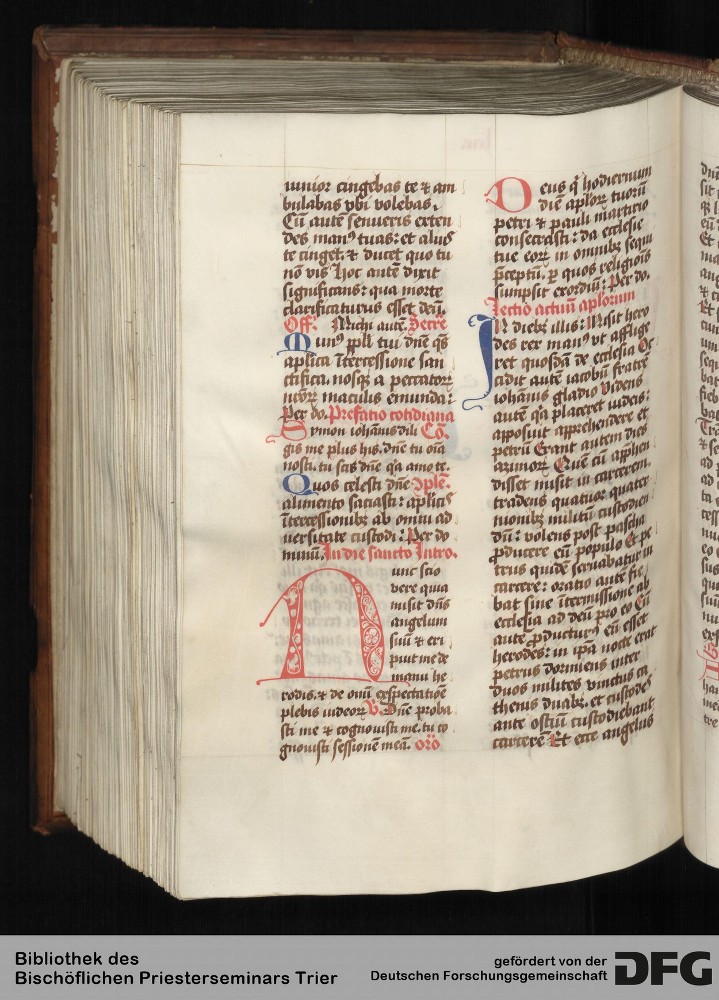 iunior cingebas te ⁊ am
bulabas ubi volebas.
Cū autē senueris exten
des manꝰ tuas: et aliꝰ
te cinget ⁊ ducet quo tu
nō vis Hoc autē dixit
significans: qua morte
clarificaturus esset deū.
Off. Michi autē. Secre
Munꝰ ppli tui dn̄e q̄s
aplica ī̄tercessione san
ctifica. nosqꝫ a peccatoꝝ
nr̄oꝝ maculis emunda:
Per do. Prefatio cotidiana
Symon iohānis dili Cō.
gis me plus his. dn̄e tu oīa
nosti. tu scis dn̄e q̄a amo te.
Quos celesti dn̄e ꝯplēn.
alimento saciasti: aplicꝭ
ītercessionibꝫ ab omni ad
uersitate custodi: Per do
minū. In die sancto Intro.
Nunc scio
vere quia
misit dn̄s
angelum
suū ⁊ eri
puit me de
manu he
rodis. ⁊ de omī exspectatiōe
plebis iudeoꝝ V. Dn̄e proba
sti me ⁊ cognouisti me. tu co
gnouisti sessionē meā. orō
Deus q̄ hodiernum
die aploꝝ tuorū
petri ⁊ pauli martirio
consecrasti: da ecclesie
tue eoꝝ in omnibꝫ sequi
p̄ceptū. ꝑ quos religiōis
sumpsit exordiū: Per do.
Lectio actuū aplorum
IN diebꝫ illis: Misit hero
des rex manꝰ ut afflige
ret quosdā de ecclesia Oc
cidit autē iacobū fratrē
iohānis gladio Videns
autē q̄a placeret iudeis:
apposuit apprehendere et
petrū Erant autem dies
azimoꝝ Quē cū apphen
disset misit in carcerem.
tradens quatuor quater
nionibꝫ militū custodien
dū: volens post pascha
ꝓducere eū populo Et pe
trus quidē seruabatur in
carcere: oratio autē fie
bat sine ītermissione ab
ecclesia ad deū pro eo Cū
autē ꝓducturꝰ eū esset
herodes: in ip̄a nocte erat
petrus dormiens inter
duos milites vinctus ca
thenis duabꝫ. et custodes
ante ostiū custodiebant
carcerē Et ecce angelus
Bibliothek des
Bischöflichen Priesterseminars Trier
gefördert von der
Deutschen Forschungsgemeinschaft
DFG